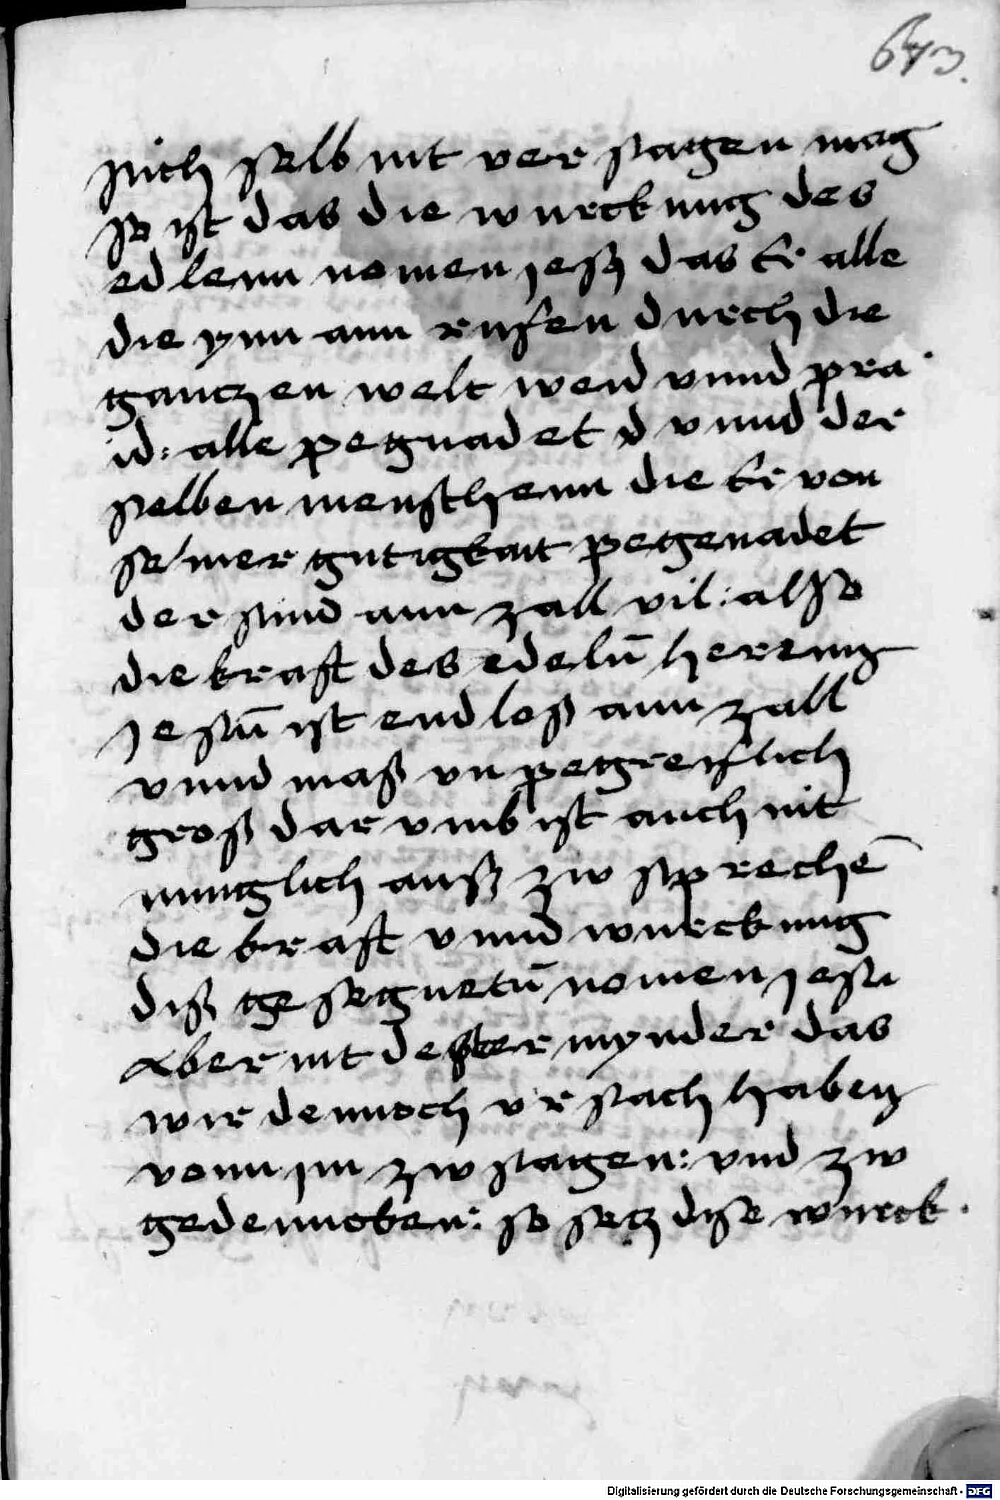 673.
sich selb nit ver sagen mag
so ist das die wurckung des
edlenn nomen jeß das Er alle
die ynn ann rufen durch die
ganczen welt weid vnnd pra
id: alle pegnadet d vnnd der
selben menschenn die Er von
seiner gutigkait pegenadet
der sind ann zall vil: also
die kraft des edelñ herren
Jesuū ist endloß ann zall
vnnd maß vn pegreiflich
groß dar vmb ist auch nit
muglich auß zw sprechē
die kraft vnnd wurckung
diß gesegnetñ nomen jesu
Aber nit dester mynder das
wir dennoch vrsach haben
vonn im zw sagen: vnd zw
gedenncken: so secz dise wurck
Digitalisierung gefördert durch die Deutsche Forschungsgemeinschaft - DFG